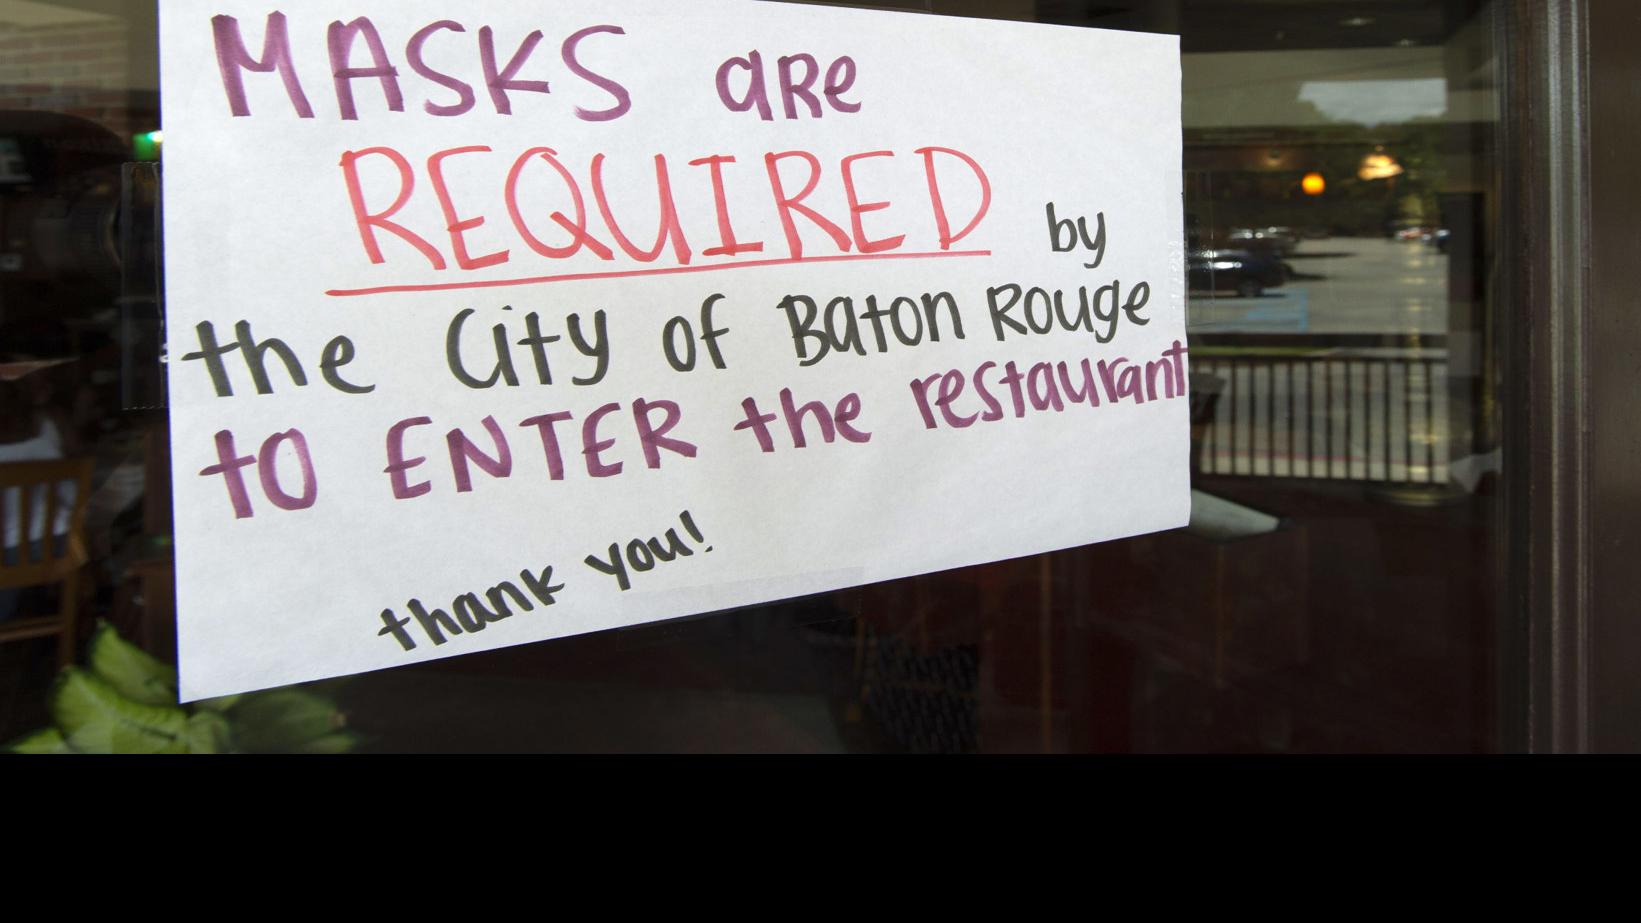 MASKS aRe
REQUIRED by
the City of Baton Rouge
to ENTER the restaurant
thank you!